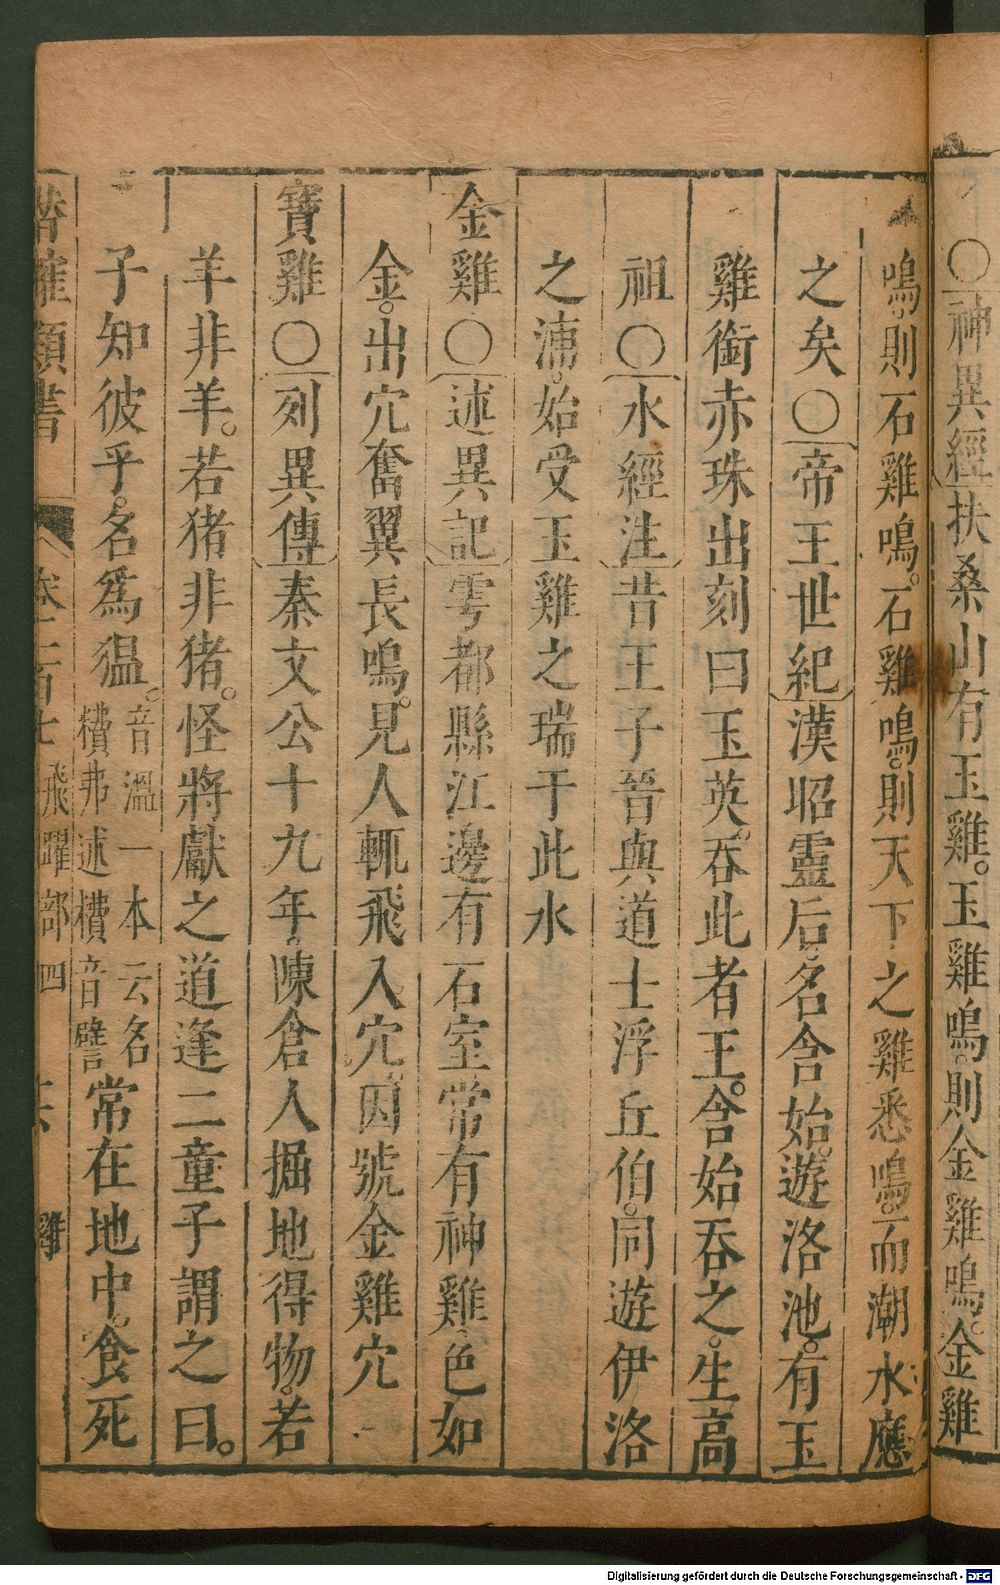 〇神異經扶桑山有玉雞。玉雞鳴。則金雞鳴。金雞
鳴。則石雞鳴。石雞鳴。則天下之雞悉鳴。而潮水應
之矣〇帝王世紀漢昭靈后。名含始。遊洛池。有玉
雞銜赤珠出刻曰玉英。吞此者王。含始吞之。生高
祖〇水經注昔王子晉與道士浮丘伯。同遊伊洛
之浦。始受玉雞之瑞于此水
金雞〇述異記雩都縣江邊有石室常有神雞。色如
金。出穴奮翼長鳴。見人輒飛入穴。因號金雞穴
寶雞〇列異傳秦文公十九年。陳倉人掘地得物。若
羊非羊。若猪非猪。怪將獻之道逢二童子謂之曰。
子知彼乎。名爲猖。音溫一本云名𥢐弗述𥢐音譬常在地中。食死
類書
飛躍部四
雞
Digitalisierung gefördert durch die Deutsche Forschungsgemeinschaft - DFG